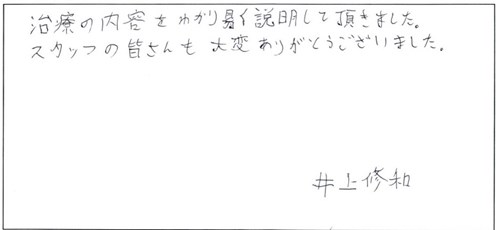 治療の内容をわかり易く説明して頂きました。
スタッフの皆さんも大変ありがとうございました。
井上修和